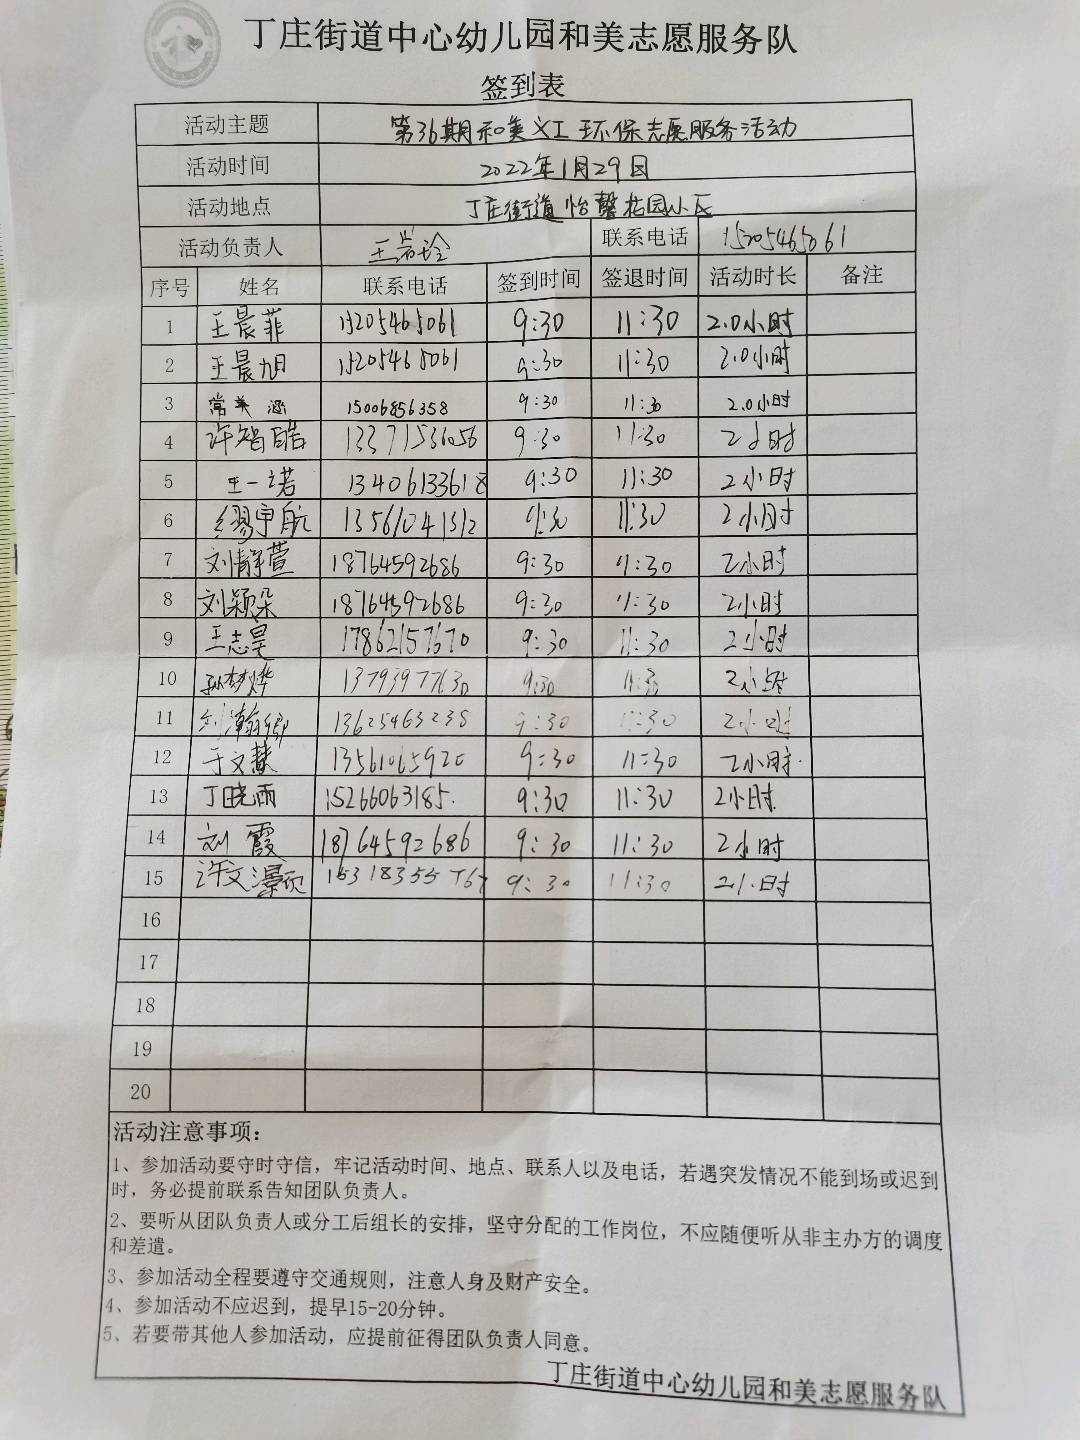 丁庄街道中心幼儿园和美志愿服务队
签到表
活动主题 第36期和美义工环保志愿服务活动
活动时间 2022年1月29日
活动地点 丁庄街道怡馨花园小区
活动负责人 王岩玲 联系电话 15205465061
序号 姓名 联系电话 签到时间 签退时间 活动时长 备注
1 王晨菲 15205465061 9:30 11:30 2.0小时
2 王晨旭 15205465061 9:30 11:30 2.0小时
3 常美涵 15006856358 9:30 11:30 2.0小时
4 许智皓 13371536056 9:30 11:30 2小时
5 王一诺 13406133618 9:30 11:30 2小时
6 缪宇航 13561041312 9:30 11:30 2小时
7 刘静萱 18764592686 9:30 11:30 2小时
8 刘颖朵 18764592686 9:30 11:30 2小时
9 王志昊 17862157670 9:30 11:30 2小时
10 孙梦烨 13793977630 9:30 11:30 2小时
11 刘瀚 13625463238 9:30 11:30 2小时
12 于文慧 13561065920 9:30 11:30 2小时
13 丁晓雨 15266063185. 9:30 11:30 2小时
14 刘霞 18764592686 9:30 11:30 2小时
15 许文灏 15318355767 9:30 11:30 2小时
16
17
18
19
20
活动注意事项：
1、参加活动要守时守信，牢记活动时间、地点、联系人以及电话，若遇突发情况不能到场或迟到
时，务必提前联系告知团队负责人。
2、要听从团队负责人或分工后组长的安排，坚守分配的工作岗位，不应随便听从非主办方的调度
和差遣。
3、参加活动全程要遵守交通规则，注意人身及财产安全。
4、参加活动不应迟到，提早15-20分钟。
5、若要带其他人参加活动，应提前征得团队负责人同意。
丁庄街道中心幼儿园和美志愿服务队